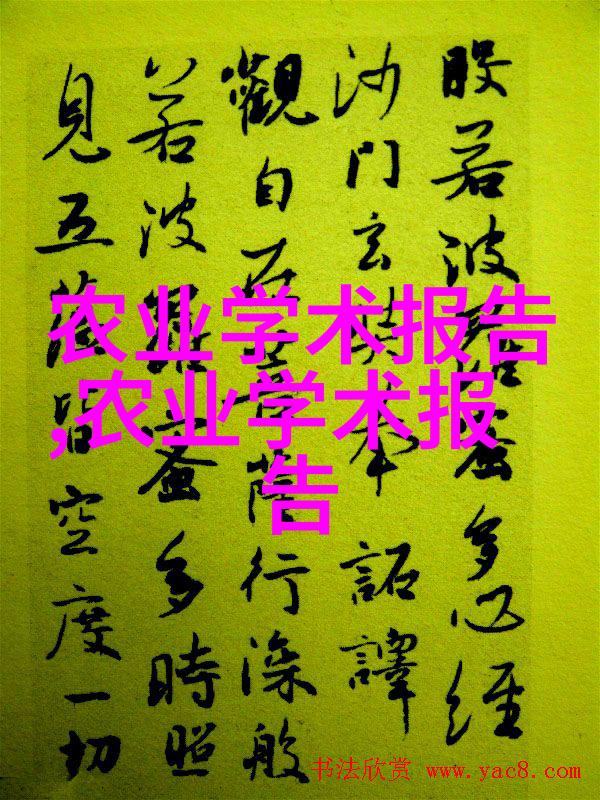 般若波羅蜜多心經
沙門玄奘奉詔譯
觀自在菩薩行深般
若波羅蜜多時照
見五蘊皆空度一切
农业学术报告
,农业学术报
告
书法欣赏 www.yac8.com